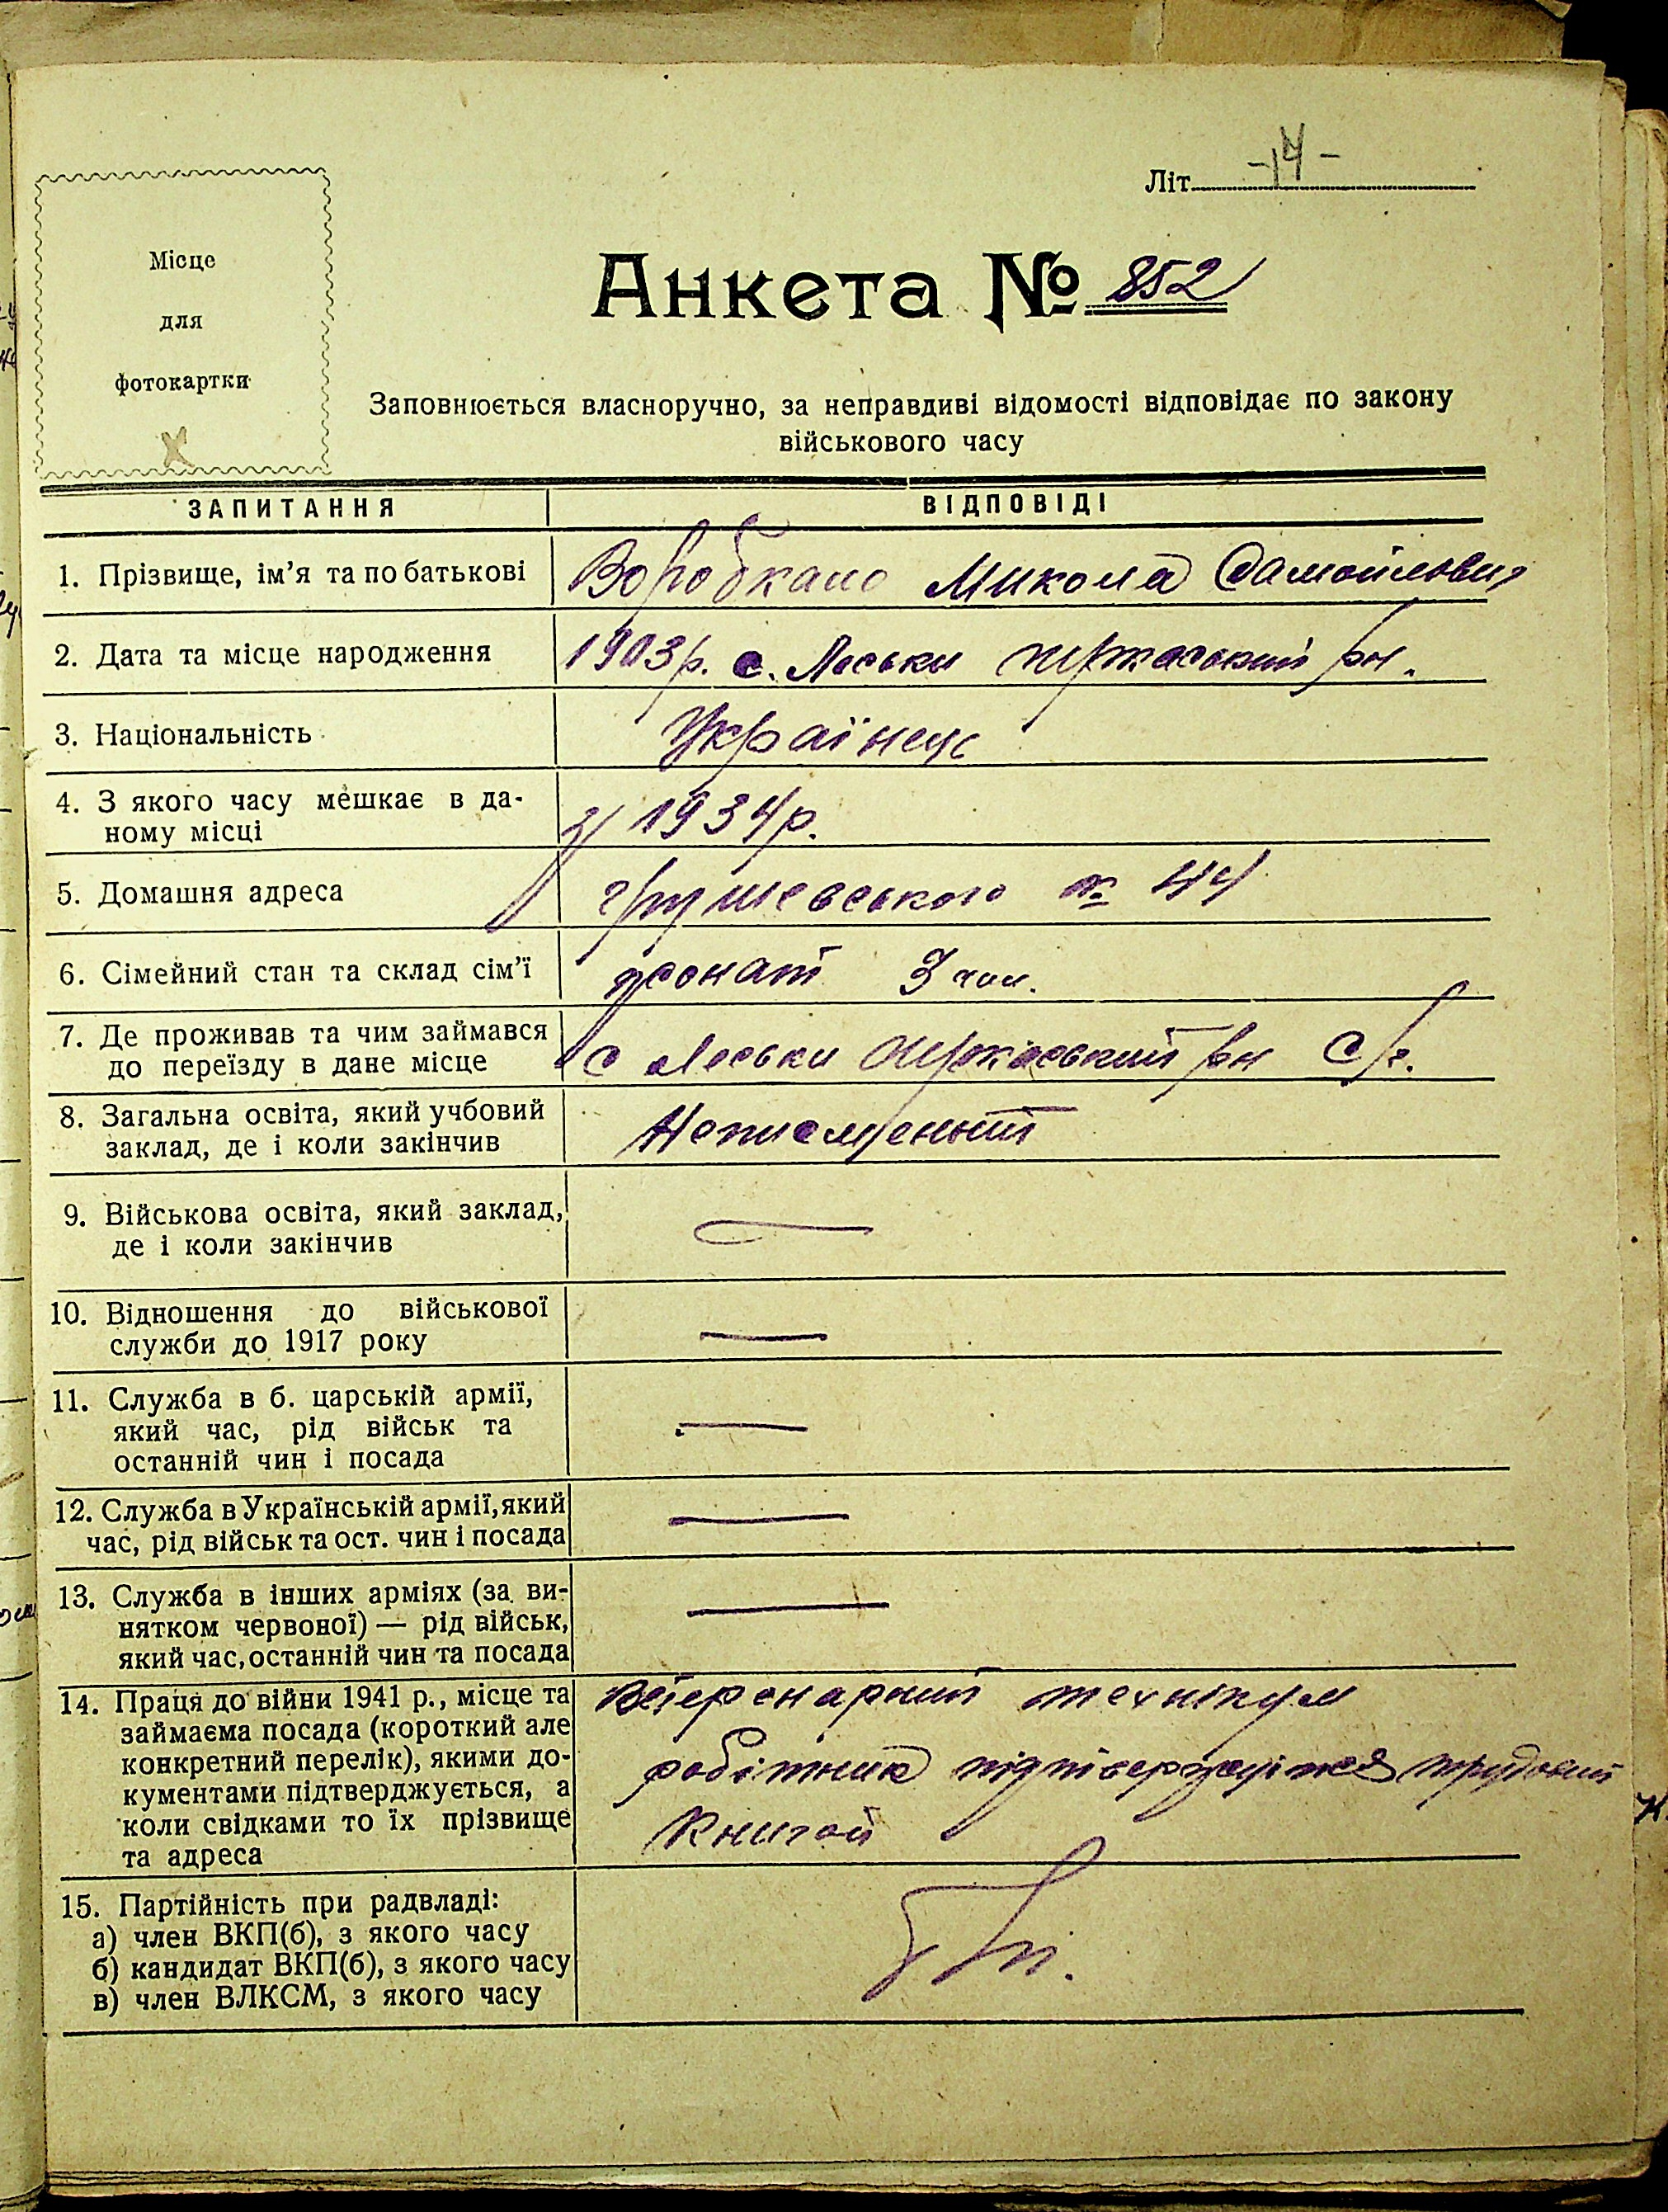 Літ. -14-
Місце
для
фотокартки
Анкета № 852
Заповнюється власноручно, за неправдиві відомості відповідає по закону
військового часу
ЗАПИТАННЯ ВІДПОВІДІ
1. Прізвище, ім'я та по батькові Микола Самойлович
2. Дата та місце народження 1903 р. с. Леськи черкаський рн.
3. Національність Українець
4. З якого часу мешкає в да-
ному місці з 1934 р.
5. Домашня адреса грушевського № 44
6. Сімейний стан та склад сім'ї жонат 3 чол.
7. Де проживав та чим займався
до переїзду в дане місце с Леськи Черкаський рн С/г.
8. Загальна освіта, який учбовий
заклад, де і коли закінчив Неписменний
9. Військова освіта, який заклад,
де і коли закінчив —
10. Відношення до військової
служби до 1917 року —
11. Служба в б. царській армії,
який час, рід військ та
останній чин і посада —
12. Служба в Українській армії, який
час, рід військ та ост. чин і посада —
13. Служба в інших арміях (за ви-
нятком червоної) — рід військ,
який час, останній чин та посада —
14. Праця до війни 1941 р., місце та
займаєма посада (короткий але
конкретний перелік), якими до-
кументами підтверджується, а
коли свідками то їх прізвище
та адреса
Ветеренарний технікум
робітник трудовий
Книгой
15. Партійність при радвладі:
а) член ВКП(б), з якого часу
б) кандидат ВКП(б), з якого часу
в) член ВЛКСМ, з якого часу